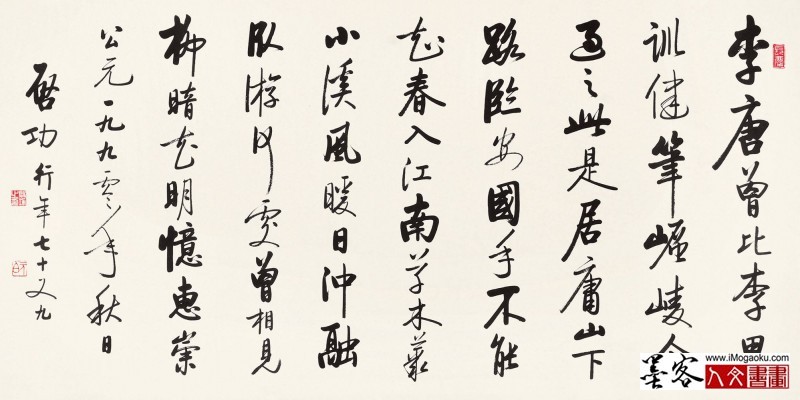 李唐曾比李思
訓健筆崛崚今
過之此是居庸山下
路臨安國手不能
知春入江南草木叢
小溪風暖日沖融
臥游何處曾相見
柳暗花明憶惠崇
公元一九九零年秋日
啟功行年七十又九
墨客
www.iMogaoku.com
人文書畫